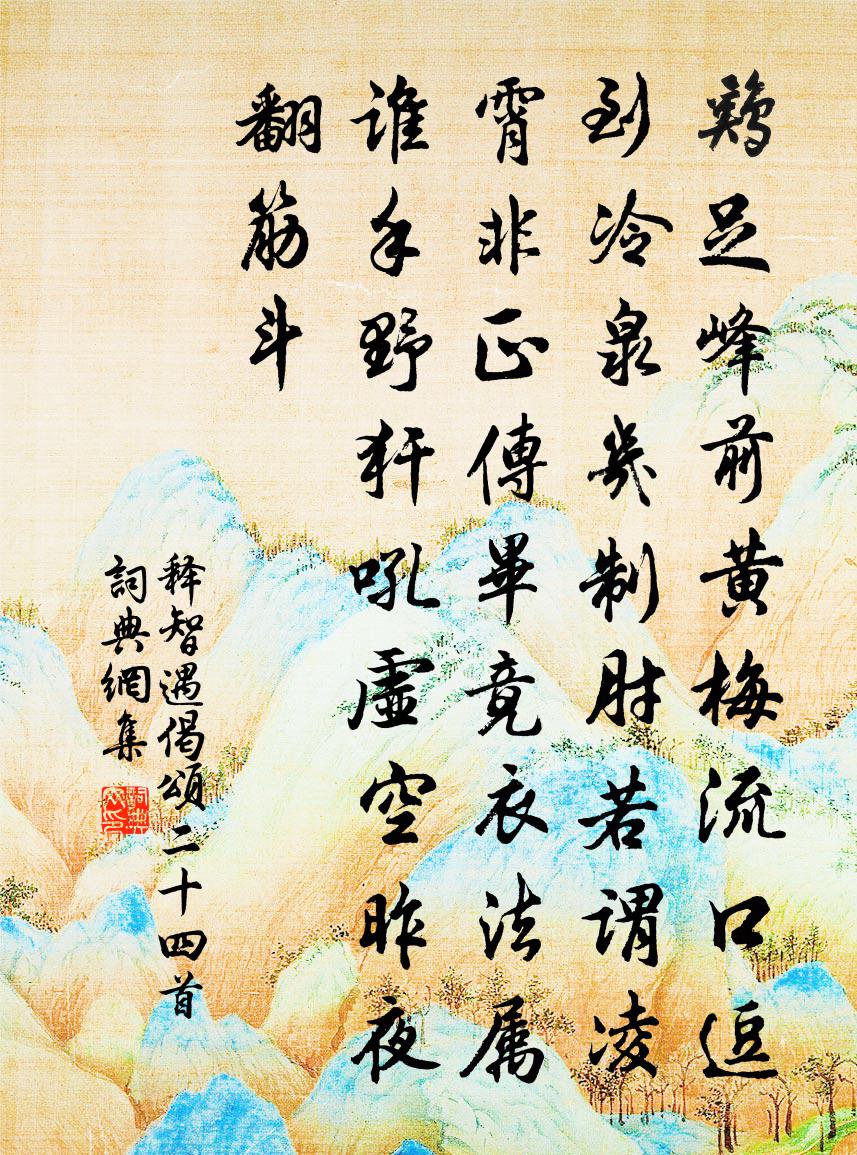 鶏足峰前黄梅流口逗
到冷泉幾制肘若谓凌
霄非正傳畢竟衣法属
谁手野犴吼虚空昨夜
翻筋斗
释智遇偈頌二十四首
詞典網集